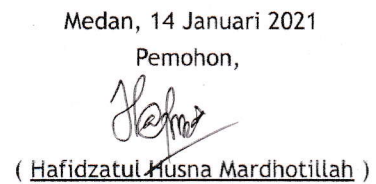 Medan, 14 Januari 2021
Pemohon,
( Hafidzatul Husna Mardhotillah )